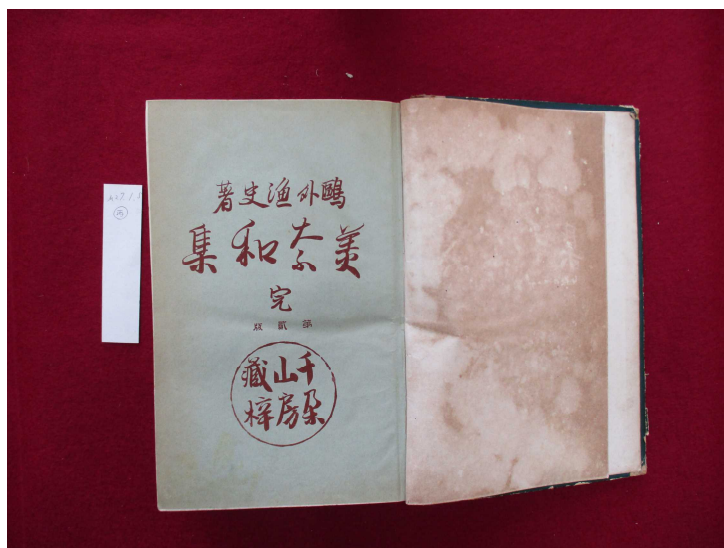 鷗外漁史著
美奈和集
完
第貳版
千朶山房
藏梓